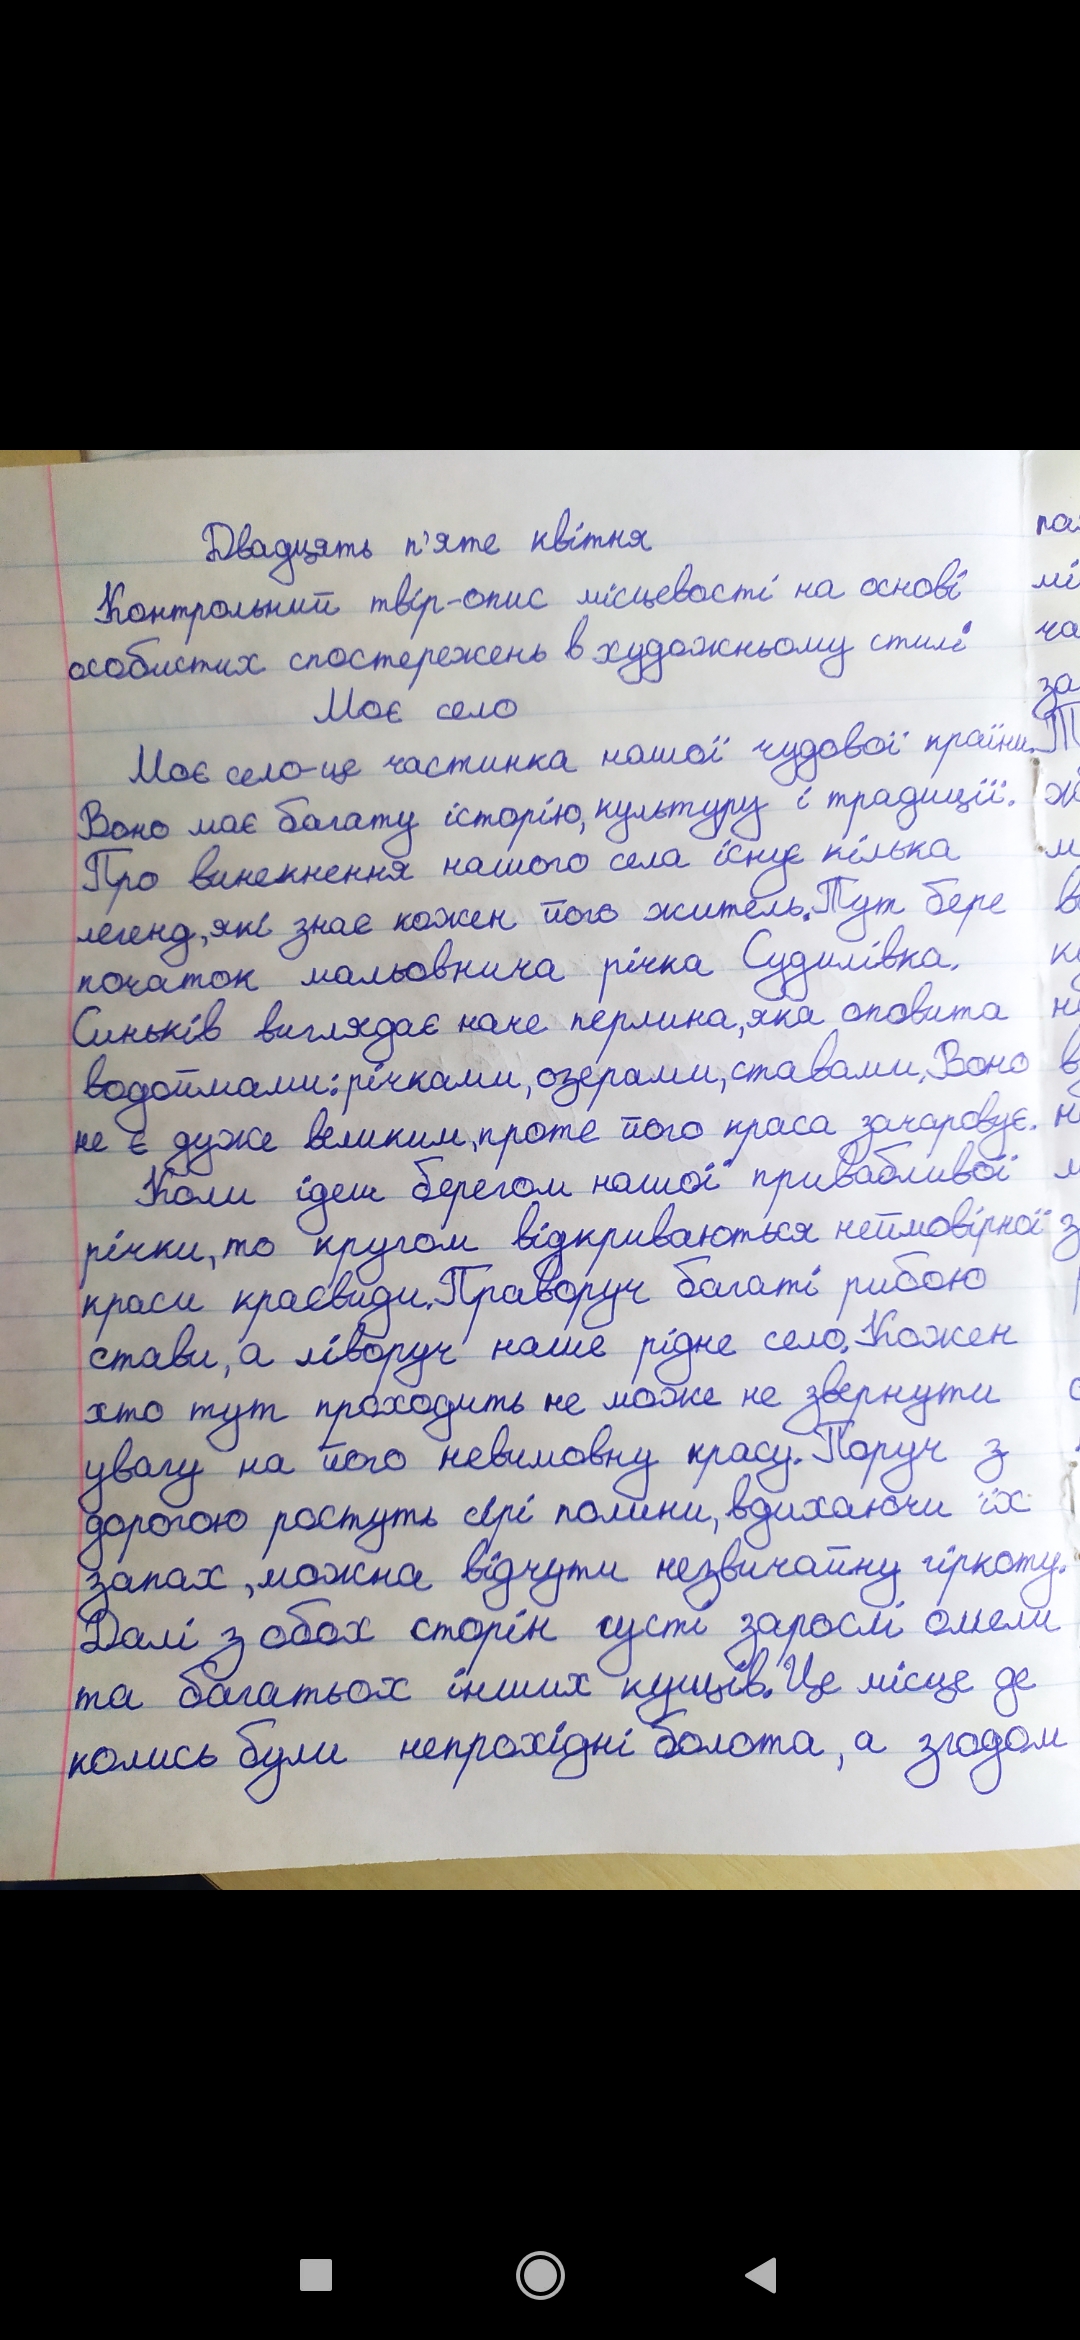 Двадцять п'яте квітня
Контрольний твір-опис місцевості на основі
особистих спостережень в художньому стилі
Моє село
Моє село-це частинка нашої чудової країни.
Воно має багату історію, культуру і традиції.
Про винекнення нашого села існує кілька
легенд, які знає кожен його житель. Тут бере
початок мальовнича річка Судилівка.
Синьків виглядає наче перлина, яка оповита
водоймами: річками, озерами, ставами. Воно
не є дуже великим, проте його краса зачаровує.
Коли ідеш берегом нашої привабливої
річки, то кругом відкриваються неймовірної
краси краєвиди. Праворуч багаті рибою
стави, а ліворуч наше рідне село. Кожен
хто тут проходить не може не звернути
увагу на його невимовну красу. Поруч з
дорогою ростуть сірі полини, вдихаючи їх
запах, можна відчути незвичайну гіркоту.
Далі з обох сторін густі зарослі омели
та багатьох інших кущів. Це місце де
колись були непрохідні болота, а згодом